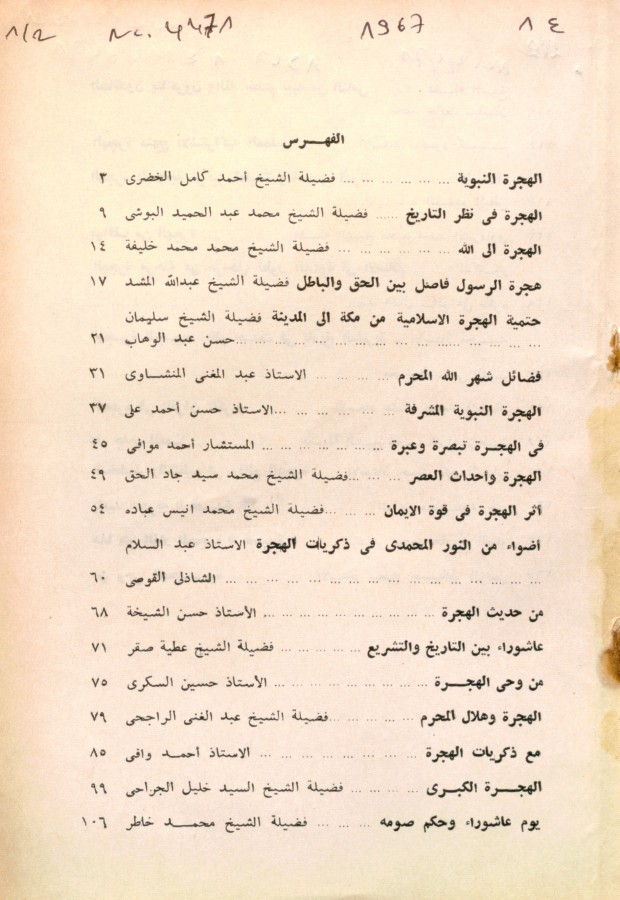 ١/٢ Nc. ٤٤٧١ ١٩٦٧ ١٤
الفهـرس
الهجرة النبوية ... ... ... ... ... ... فضيلة الشيخ أحمد كامل الخضرى ٣
الهجرة فى نظر التاريخ ...... فضيلة الشيخ محمد عبد الحميد البوشى ٩
الهجرة الى الله ... ... ... ... ... ... فضيلة الشيخ محمد محمد خليفة ١٤
هجرة الرسول فاصل بين الحق والباطل فضيلة الشيخ عبدالله المشد ١٧
حتمية الهجرة الاسلامية من مكة الى المدينة فضيلة الشيخ سليمان
... ... ... ... ... ... ... ... ... ... ... ... حسن عبد الوهاب ٢١
فضائل شهر الله المحرم ... ... ... ... الاستاذ عبد المغنى المنشـاوى ٣١
الهجرة النبوية المشرفة ... ... ... ... ... ...الاستاذ حسن أحمد على ٣٧
فى الهجـرة تبصرة وعبرة ... ... ... ... ... ... المستشار أحمد موافى ٤٥
الهجرة وأحداث العصر ... ... ...فضيلة الشيخ محمد سيد جاد الحق ٤٩
أثر الهجرة فى قوة الايمان ... ... ...فضيلة الشيخ محمد أنيس عباده ٥٤
أضواء من النور المحمدى فى ذكريات الهجرة الاستاذ عبد السلام
... ... ... ... ... ... ... ... ... ... ... ... الشاذلى القوصى ٦٠
من حديث الهجرة ... ... ... ... ... ... ... ... الأستاذ حسن الشيخة ٦٨
عاشوراء بين التاريخ والتشريع ... ... ... ... ... فضيلة الشيخ عطية صقر ٧١
من وحى الهجـــرة ... ... ... ... ... ... ... ... الأستاذ حسين السكرى ٧٥
الهجرة وهلال المحرم ... ... ... ... ...فضيلة الشيخ عبد الغنى الراجحى ٧٩
مع ذكريات الهجرة ... ... ... ... ... ... ... ... الاستاذ أحمـد وافى ٨٥
الهجـــرة الكبرى ... ... ... ... ... فضيلة الشيخ السيد خليل الجراحى ٩٩
يوم عاشوراء وحكم صومه ... ... ... فضيلة الشيخ محمــد خاطر ١٠٦